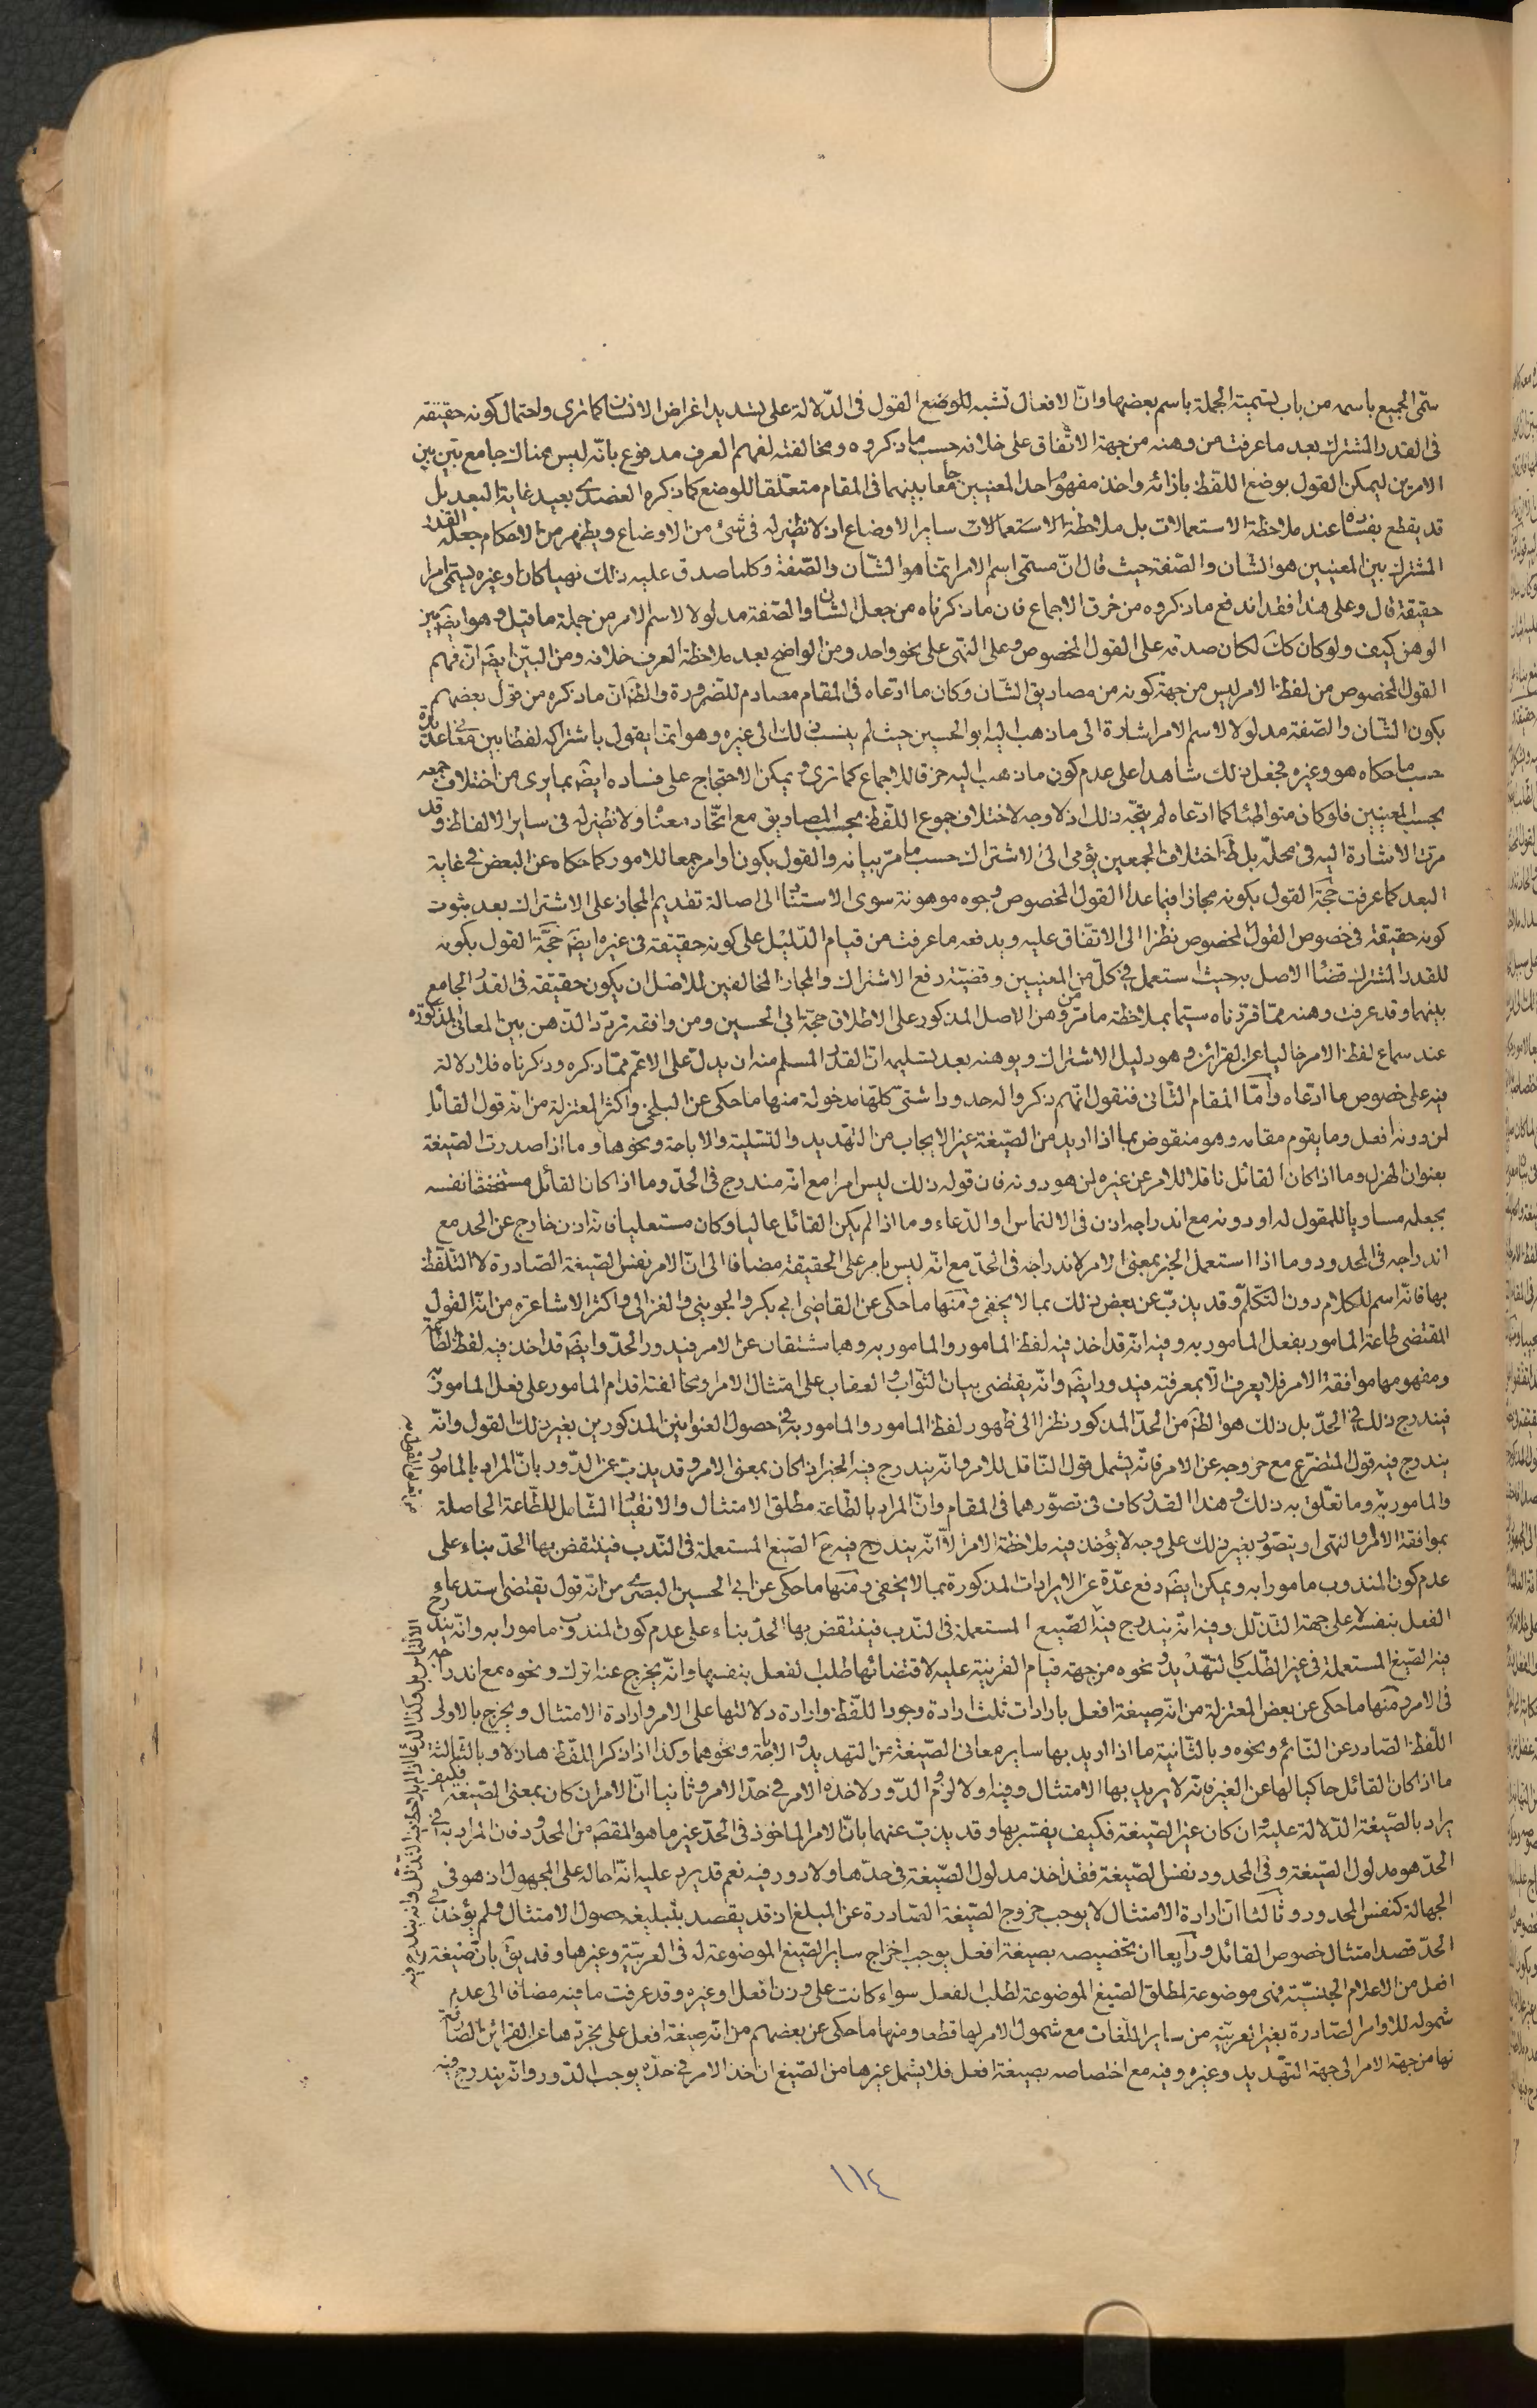 سمّى الجميع باسمه من باب تسمية الجملة باسم بعضها وانّ الافعال تشبه للوضع القول فى الدّلالة على تسديد اغراض الانسان كما ترى واحتمال كونه حقيقة
فى القدر المشترك بعد ما عرفت من وهنه من جهة الاتّفاق على خلافه حسب ما ذكروه ومخالفته لفهم العرف مدفوع بانّه ليس هناك جامع بيّن بين
الامرين ليمكن القول بوضع اللفظ بازائه واخذ مفهوم احد المعنيين جامعا بينهما فى المقام متعلّقا للوضع كما ذكره العضدى بعيد غاية البعد بل
قد يقطع بفساده عند ملاحظة الاستعمالات بل ملاحظة الاستعمالات ساير الاوضاع اذ لا نظير له فى شئ من الاوضاع ويظهر من الاحكام جعله القدر
المشترك بين المعنيين هو الشان والصّفة حيث قال انّ مسمّى اسم الامر انّما هو الشّان والصّفة وكلما صدق عليه ذلك نهيا كان او غيره يسمّى امرا
حقيقة قال وعلى هذا فقد اندفع ما ذكروه من خرق الاجماع فان ما ذكرناه من جعل الشان والصّفة مدلولا لاسم الامر من جملة ما قيل وهو ايضا بيّن
الوهن كيف ولو كان كك لكان صدقه على القول المخصوص وعلى النهى على نحو واحد ومن الواضح بعد ملاحظة العرف خلافه ومن البيّن ايضا ان فهم
القول المخصوص من لفظ الامر ليس من جهة كونه من مصاديق الشّان وكان ما ادّعاه فى المقام مصادم للضّرورة والظّ انّ ما ذكره من قول بعضهم
بكون الشّان والصّفة مدلولا لاسم الامر اشارة الى ما ذهب اليه ابو الحسين حيث لم ينسب ذلك الى غيره وهو انّما يقول باشتراكه لفظا بين معانى عديدة
حسب ما حكاه هو وغيره فجعل ذلك شاهدا على عدم كون ما ذهب اليه خرقا للاجماع كما ترى ويمكن الاحتجاج على فساده ايضا بما يرى من اختلاف جمعه
بحسب المعنيين فلو كان متواطئا كما ادّعاه لم يتّجه ذلك اذ لا وجه لاختلاف جموع اللّفظ بحسب المصاديق مع اتّحاد معناه ولا نظير له فى ساير الالفاظ وقد
مرّت الاشارة اليه فى محلّه بل الظّ اختلاف الجمعين يؤمى الى الاشتراك حسب ما مرّ بيانه والقول بكون اوامر جمعا للامور كما حكاه عن البعض فى غاية
البعد كما عرفت حجّة القول بكونه مجازا فيما عدا القول المخصوص وجوه موهونة سوى الاستناد الى اصالة تقديم المجاز على الاشتراك بعد ثبوت
كونه حقيقة فى خصوص القول المخصوص نظرا الى الاتّفاق عليه ويدفعه ما عرفت من قيام الدّليل على كونه حقيقة فى غيره ايضا حجّة القول بكونه
للقدر المشترك قضاء الاصل به حيث استعمل فى كلّ من المعنيين وقضيّة رفع الاشتراك والمجاز المخالفين للاصل ان يكون حقيقة فى القدر الجامع
بينهما وقد عرفت وهنه ممّا قرّرناه سيّما بملاحظة ما مرّ من وهن الاصل المذكور على الاطلاق حجّة ابى الحسين ومن وافقه تردّد الذّهن بين المعانى المذكورة
عند سماع لفظ الامر خاليا عن القرائن وهو دليل الاشتراك ويوهنه بعد تسليمه انّ القدر المسلم منه ان يدلّ على الاعم ممّا ذكره وذكرناه فلا دلالة
فيه على خصوص ما ادّعاه وامّا المقام الثّانى فنقول انّهم ذكروا له حدودا شتّى كلّها مدخولة منها ما حكى عن البلخى واكثر المعتزلة من انّه قول القائل
لمن دونه افعل وما يقوم مقامه وهو منقوض بما اذا اريد من الصّيغة غير الايجاب من التّهديد والتسلية والاباحة ونحوها وما اذا صدرت الصّيغة
بعنوان الهزل وما اذا كان القائل ناقلا للامر عن غيره لمن هو دونه فان قوله ذلك ليس امرا مع انّه مندرج فى الحدّ وما اذا كان القائل مستخفضا نفسه
بجعله مساويا للمقول له او دونه مع اندراجه اذن فى الالتماس او الدّعاء وما اذا لم يكن القائل عاليا وكان مستعليا فانه اذن خارج عن الحد مع
اندراجه فى المحدود وما اذا استعمل الخبر بمعنى الامر لاندراجه فى الحدّ مع انّه ليس بامر على الحقيقة مضافا الى انّ الامر نفس الصّيغة الصّادرة لا التّلفّظ
بها فانّه اسم للكلام دون التّكلّم وقد يذبّ عن بعض ذلك بما لا يخفى ومنها ما حكى عن القاضى ابى بكر والجوينى والغزالى واكثر الاشاعرة من انّه القول
المقتضى طاعة المامور بفعل المامور به وفيه انّه قد اخذ فيه لفظ المامور والمامور به وهما مشتقان عن الامر فيدور الحدّ وايضا قد اخذ فيه لفظ الطّاعة
ومفهومها موافقة الامر فلا يعرف الّا بمعرفته فيدور ايضا وانّه يقتضى بيان الثّواب والعقاب على امتثال الامر ومخالفته اقدام المامور على فعل المامور به
فيندرج ذلك فى الحدّ بل ذلك هو الظّ من الحدّ المذكور نظرا الى ظهور لفظ المامور والمامور به فى حصول العنوانين المذكورين بغير ذلك القول وانّه
يندرج فيه قول المتضرّع مع خروجه عن الامر فانّه يشمل قول النّاقل للامر وانّه يندرج فيه الخبر اذا كان بمعنى الامر وقد يذبّ عن الدّور بانّ المراد بالمامور
والمامور به وما تعلّق به ذلك وهذا القدر كاف فى تصوّرهما فى المقام وانّ المراد بالطّاعة مطلق الامتثال والانقياد الشّامل للطّاعة الحاصلة
بموافقة الامر والنهى او يتصوّر بغير ذلك على وجه لا يؤخذ فيه ملاحظة الامر الّا انّه يندرج فيه ح الصّيغ المستعملة فى النّدب فينتقض بها الحدّ بناء على
عدم كون المندوب مامورا به ويمكن ايضا دفع عدّة من الايرادات المذكورة بما لا يخفى ومنها ما حكى عن ابى الحسين البصرى من انّه قول يقتضى استدعاء
الفعل بنفسه لا على جهة التذلّل وفيه انّه يندرج فيه الصّيغ المستعملة فى النّدب فينتقض بها الحدّ بناء على عدم كون المندوب مامورا به وانّه يندرج
فيه الصّيغ المستعملة فى غير الطّلب كالتّهديد ونحوه من جهة قيام القرينة عليه لاقتضائها طلب الفعل بنفسها وانّه يخرج عنه اترك ونحوه مع اندراجه
فى الامر ومنها ما حكى عن بعض المعتزلة من انّه صيغة افعل بارادات ثلث ارادة وجود اللّفظ وارادة دلالتها على الامر وارادة الامتثال ويخرج بالاولى
اللّفظ الصّادر عن النّائم ونحوه وبالثّانية ما اذا اريد بها ساير معانى الصّيغة من التهديد والاباحة ونحوهما وكذا اذا ذكر اللّفظ هازلا وبالثّالثة
ما اذا كان القائل حاكيا لها عن الغير فانّه لا يريد بها الامتثال وفيه اولا لزوم الدّور لاخذه الامر فى حدّ الامر وثانيا انّ الامر ان كان بمعنى الصّيغة فكيف
يراد بالصّيغة الدّلالة عليه وان كان غير الصّيغة فكيف يفسّر بها وقد يذبّ عنهما بانّ الامر الماخوذ فى الحدّ غير ما هو المقصود من المحدود فان المراد به فى
الحدّ هو مدلول الصّيغة وفى المحدود نفس الصّيغة فقد اخذ مدلول الصّيغة فى حدّها ولا دور فيه نعم قد يرد عليه انّه احاله على المجهول اذ هو فى
الجهالة كنفس المحدود وثالثا انّ ارادة الامتثال لا يوجب خروج الصّيغة الصّادرة عن المبلغ اذ قد يقصد بتبليغه حصول الامتثال ولم يؤخذ فى
الحدّ قصد امتثال خصوص القائل ورابعا ان تخصيصه بصيغة افعل يوجب اخراج ساير الصّيغ الموضوعة له فى العربيّة وغيرها وقد يق بانّ صيغة
افعل من الاعلام الجنسيّة فهى موضوعة لمطلق الصّيغ الموضوعة لطلب الفعل سواء كانت على وزن افعل او غيره وقد عرفت ما فيه مضافا الى عدم
شموله للاوامر الصّادرة بغير العربيّة من ساير اللّغات مع شمول الامر لها قطعا ومنها ما حكى عن بعضهم من انّه صيغة افعل على تجرّدها عن القرائن الصّارفة
لها من جهة الامر الى جهة التّهديد وغيره وفيه مع اختصاصه بصيغة افعل فلا يشمل غيرها من الصّيغ ان اخذ الامر فى حدّه يوجب الدّور وانّه يندرج فيه
١١٤